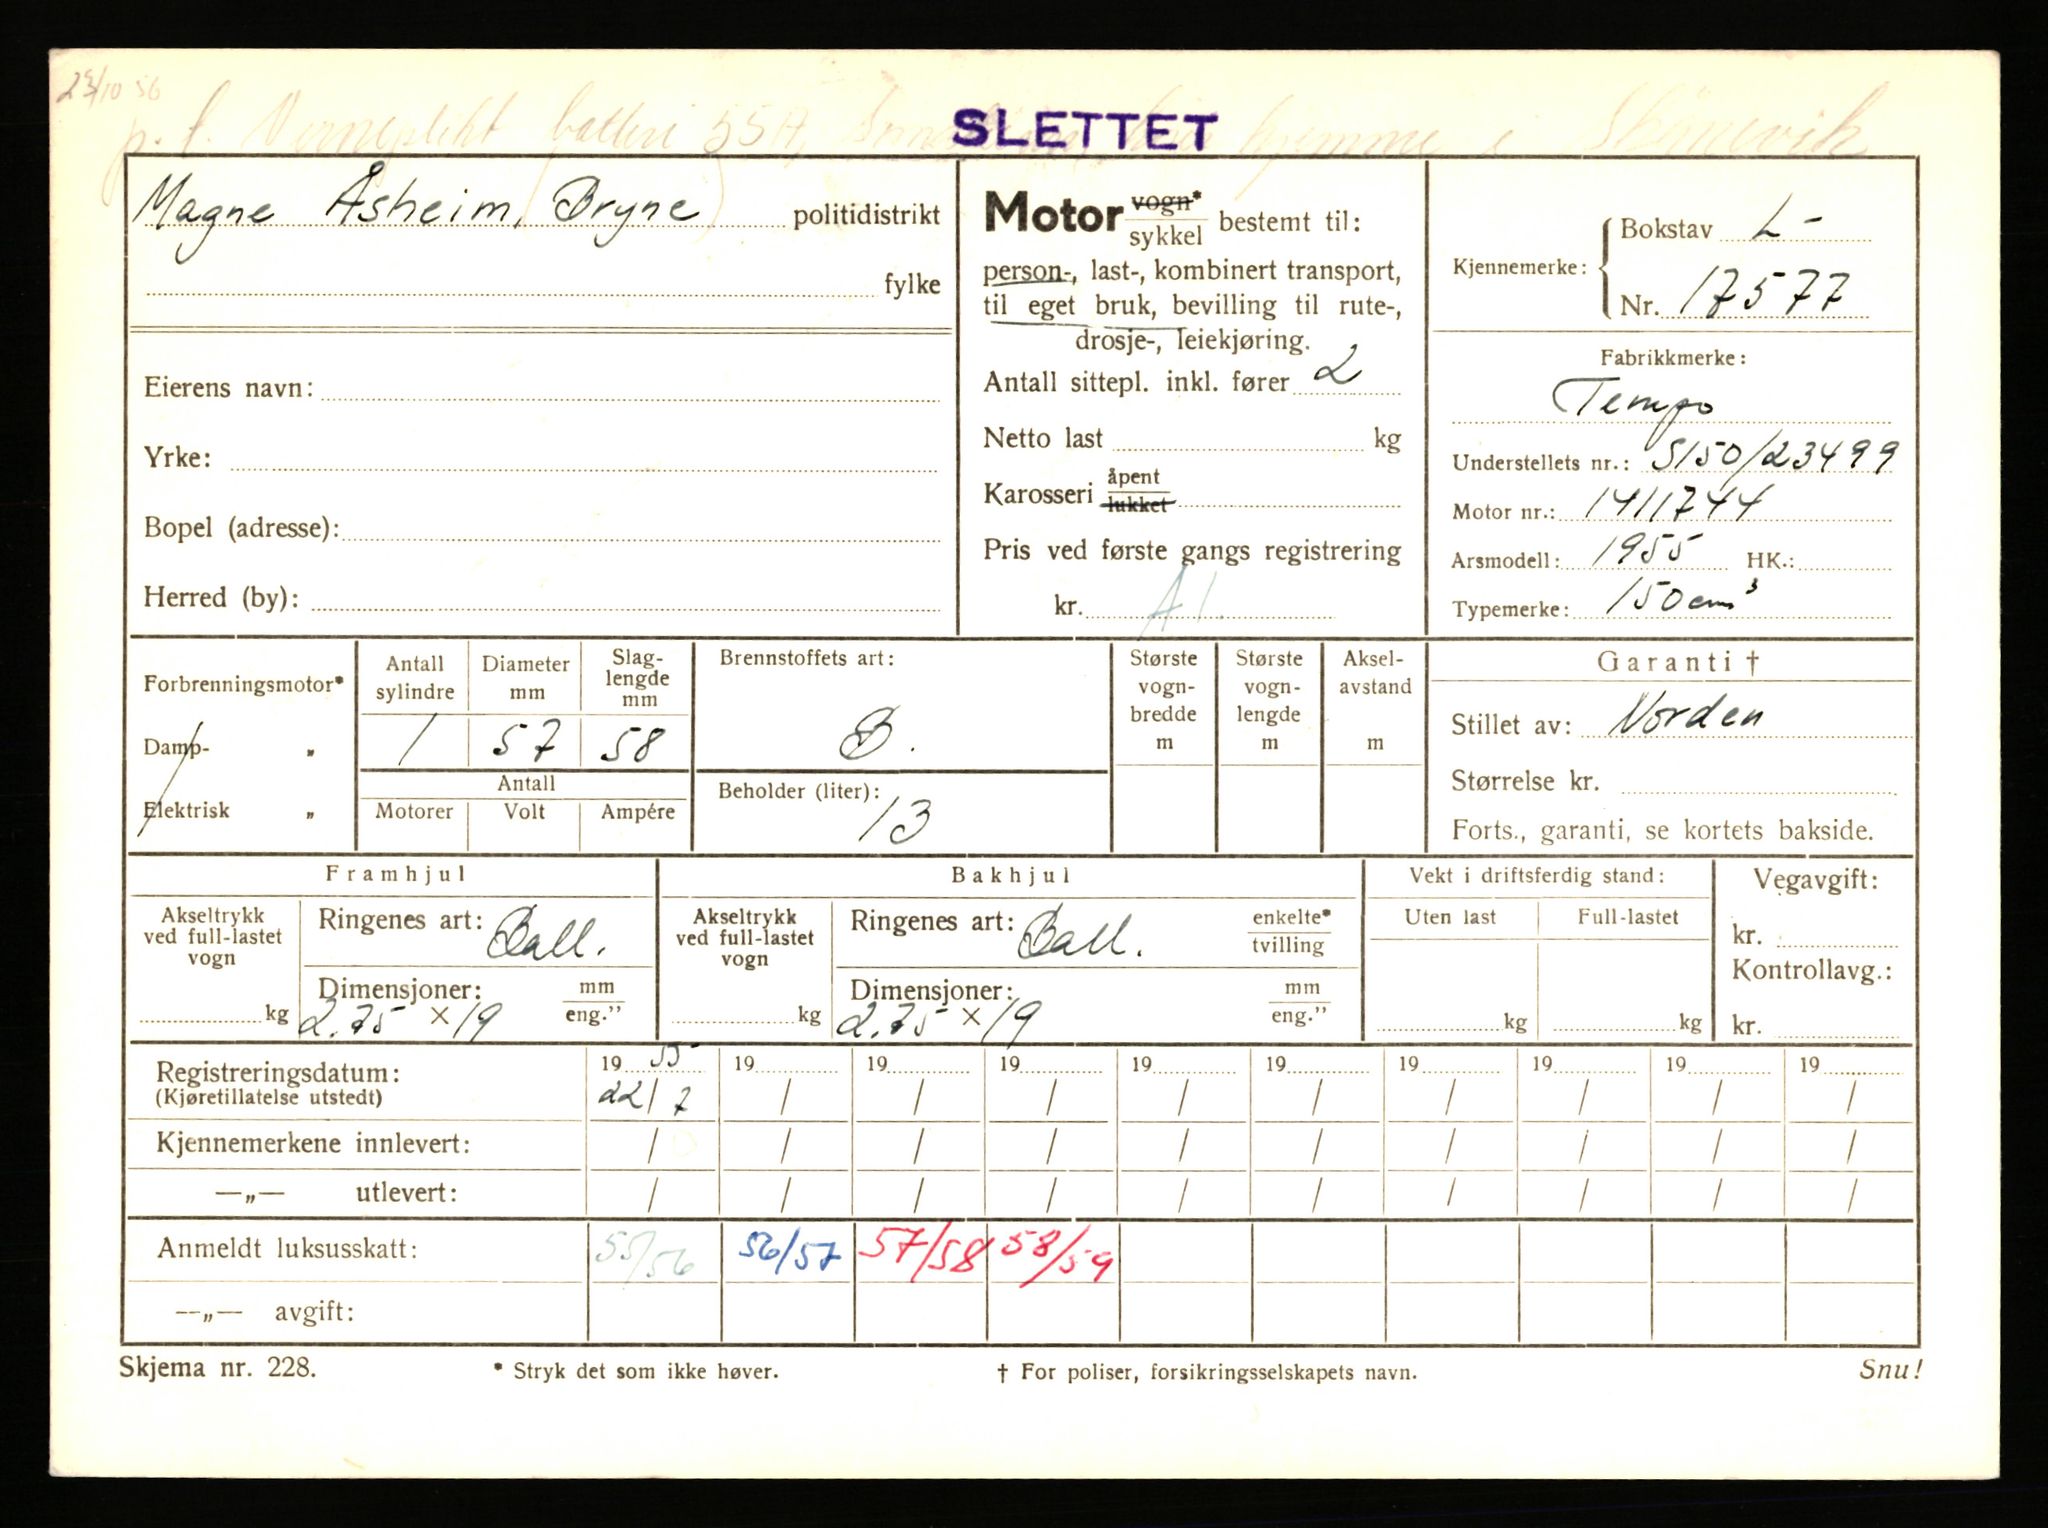 23/10 56
p. t. Verneplikt batteri 55A, hjemme i Skånevik
SLETTET
Magne Åsheim, (Bryne) politidistrikt
fylke
Eierens navn:
Yrke:
Bopel (adresse):
Herred (by):
Motor vogn* sykkel bestemt til:
person-, last-, kombinert transport,
til eget bruk, bevilling til rute-,
drosje-, leiekjøring.
Antall sittepl. inkl. fører 2
Netto last kg
Karosseri åpent lukket
Pris ved første gangs registrering
kr. A1.
Kjennemerke: Bokstav L-
Nr. 17577
Fabrikkmerke:
Tempo
Understellets nr.: S150/23499
Motor nr.: 1411744
Arsmodell: 1955 HK.:
Typemerke: 150 cm³
Forbrenningsmotor*
Damp- „
Elektrisk „
Antall sylindre
1
Diameter mm
57
Slag-lengde mm
58
Antall
Motorer Volt Ampére
Brennstoffets art:
B.
Beholder (liter):
13
Største vogn-bredde m
Største vogn-lengde m
Aksel-avstand m
Garanti †
Stillet av: Norden
Størrelse kr.
Forts., garanti, se kortets bakside.
Framhjul
Akseltrykk ved full-lastet vogn
kg
Ringenes art: Ball.
Dimensjoner: mm eng.”
2.75 × 19
Bakhjul
Akseltrykk ved full-lastet vogn
kg
Ringenes art: Ball. enkelte* tvilling
Dimensjoner: mm eng.”
2.75 × 19
Vekt i driftsferdig stand:
Uten last Full-lastet
kg kg
Vegavgift:
kr.
Kontrollavg.:
kr.
Registreringsdatum: 19 55 19 19 19 19 19 19 19 19 19
(Kjøretillatelse utstedt) 22/7 / / / / / / / / /
Kjennemerkene innlevert: / / / / / / / / / /
—„— utlevert: / / / / / / / / / /
Anmeldt luksusskatt: 55/56 56/57 57/58 58/59
—„— avgift:
Skjema nr. 228. * Stryk det som ikke høver. † For poliser, forsikringsselskapets navn. Snu!